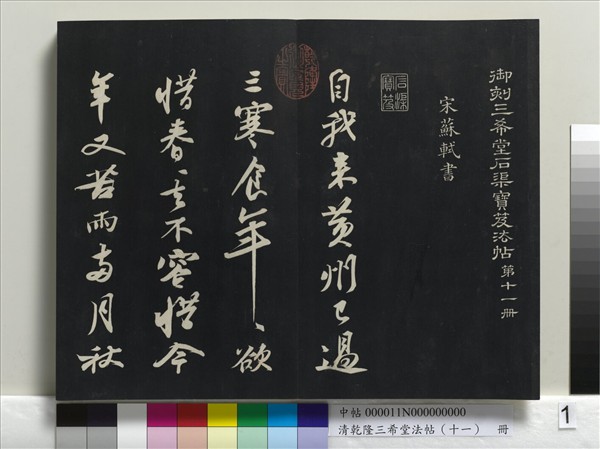 御刻三希堂石渠寶笈法帖 第十一冊
宋蘇軾書
石渠寶笈
自我来黃州已過
三寒食年〻欲
惜春〻去不容惜今
年又苦雨兩月秋
中帖 000011N000000000
清乾隆三希堂法帖(十一) 冊
1